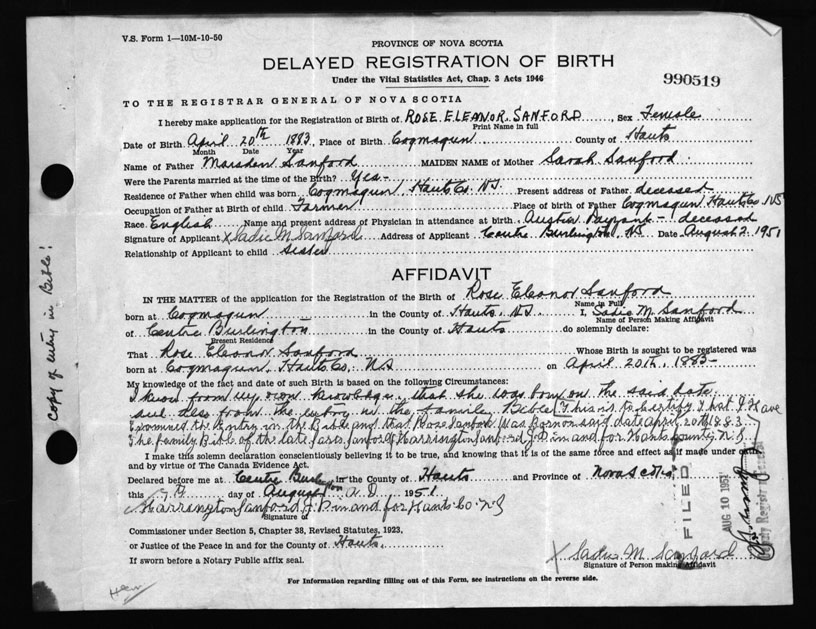 V.S. Form 1—10M-10-50
PROVINCE OF NOVA SCOTIA
DELAYED REGISTRATION OF BIRTH
Under the Vital Statistics Act, Chap. 3 Acts 1946
990519
TO THE REGISTRAR GENERAL OF NOVA SCOTIA
I hereby make application for the Registration of Birth of ROSE ELEANOR SANFORD, Sex Female
Print Name in full
Date of Birth April 20th 1883, Place of Birth Cogmagun County of Hants
Month Date Year
Name of Father Marsden Sanford MAIDEN NAME of Mother Sarah Sanford
Were the Parents married at the time of the Birth? Yes-
Residence of Father when child was born Cogmagun Hants Co. N.S. Present address of Father deceased
Occupation of Father at Birth of child Farmer Place of birth of Father Cogmagun Hants Co NS
Race English Name and present address of Physician in attendance at birth Austin - deceased
Signature of Applicant X Sadie M Sanford Address of Applicant Centre Burlington, NS Date August 2, 1951
Relationship of Applicant to child Sister
AFFIDAVIT
IN THE MATTER of the application for the Registration of the Birth of Rose Eleanor Sanford
Name in Full
born at Cogmagun in the County of Hants, N.S. I, Sadie M. Sanford
Name of Person Making Affidavit
of Centre Burlington in the County of Hants do solemnly declare:
Present Residence
That Rose Eleanor Sanford Whose Birth is sought to be registered was
born at Cogmagun, Hants Co., NS on April 20th, 1883-
My knowledge of the fact and date of such Birth is based on the following Circumstances:
I know from my own knowledge that she was born on the said date
and also from the entry in the family Bible This is to certify that I Have
Examined the Entry in the Bible and that Rose Sanford was Born on said date April 20th 1883
The family Bible of the late Sanford Harrington Sanford J.P. in and for Hants County N.S
I make this solemn declaration conscientiously believing it to be true, and knowing that it is of the same force and effect as if made under oath
and by virtue of The Canada Evidence Act.
Declared before me at Centre Burlington in the County of Hants and Province of Nova Scotia
this day of August A.D. 1951
Harrington Sanford J.P. in and for Hants Co. N.S
Signature of
Commissioner under Section 5, Chapter 38, Revised Statutes, 1923,
or Justice of the Peace in and for the County of Hants.
If sworn before a Notary Public affix seal.
X Sadie M. Sanford
Signature of Person making Affidavit
For Information regarding filling out of this Form, see instructions on the reverse side.
Copy of entry in Bible!
FILED
AUG 10 1951
Deputy Registrar General